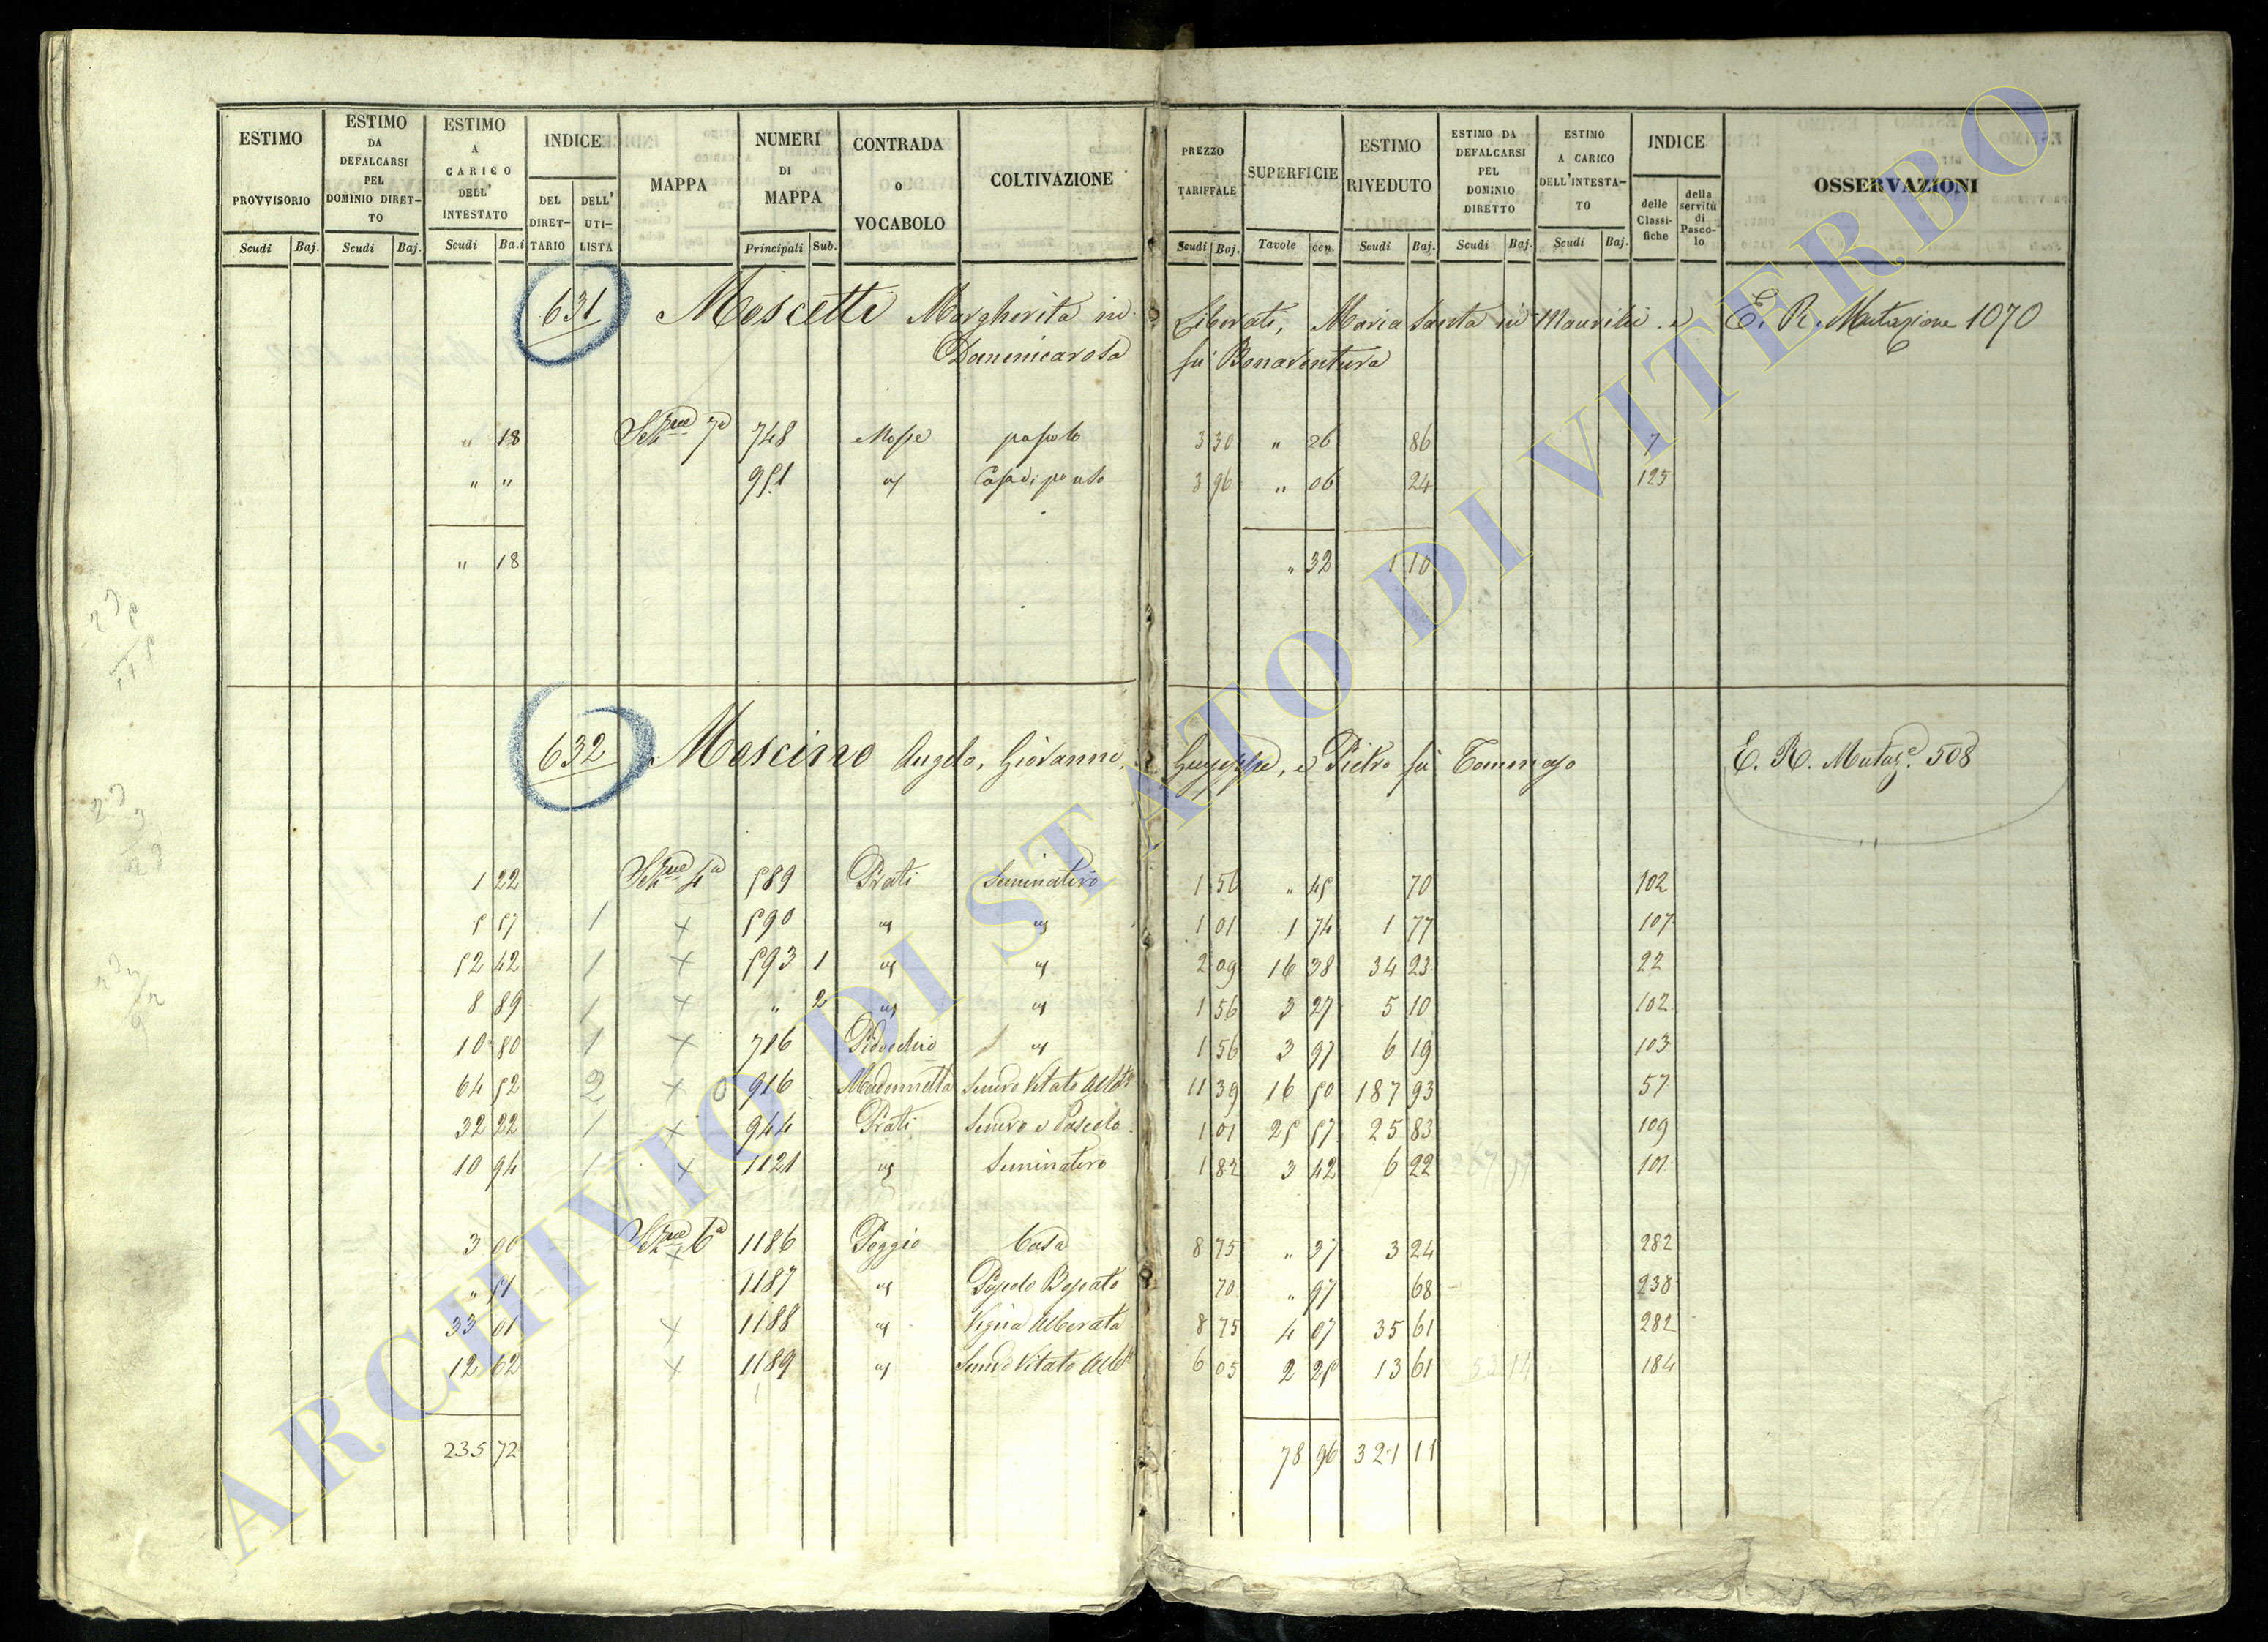 ESTIMO PROVVISORIO Scudi Baj.
ESTIMO DA DEFALCARSI PEL DOMINIO DIRET- TO Scudi Baj.
ESTIMO A CARICO DELL' INTESTATO Scudi Ba.i
INDICE DEL DIRET- TARIO DELL' UTI- LISTA
MAPPA
NUMERI DI MAPPA Principali Sub.
CONTRADA O VOCABOLO
COLTIVAZIONE
PREZZO TARIFFALE Scudi Baj.
SUPERFICIE Tavole cen.
ESTIMO RIVEDUTO Scudi Baj.
ESTIMO DA DEFALCARSI PEL DOMINIO DIRETTO Scudi Baj.
ESTIMO A CARICO DELL'INTESTA- TO Scudi Baj.
INDICE delle Classi- fiche della servitù di Pasco- lo
OSSERVAZIONI
631 Moscetti Margherita in Liberati, Maria Santa in Maurilii e E. R. Mutazione 1070
Domenicarosa fu Bonaventura
" 18 Sezne 7a 748 Mosse pascolo 3 30 " 26 86 7
" " 951 " Casa di punto 3 96 " 06 24 125
" 18 " 32 1 10
632 Moscino Angelo, Giovanni, Giuseppe, e Pietro fu Tommaso E. R. Mutaze 508
1 22 Sezne 4a 589 Prati Seminativo 1 56 " 45 70 102
5 57 1 x 590 " " 1 01 1 74 1 77 107
52 42 1 x 593 1 " " 2 09 16 38 34 23 22
8 89 1 x " 2 " " 1 56 3 27 5 10 102
10 80 1 x 716 Pidocchio " 1 56 3 97 6 19 103
64 52 2 x 0 916 Madonnella Semvo Vitato Albto 11 39 16 50 187 93 57
32 22 1 x 944 Prati Semvo e Pascolo 1 01 25 57 25 83 109
10 94 1 x 1121 " Seminativo 1 82 3 42 6 22 101
3 00 Sezne 6a x 1186 Poggio Casa 8 75 " 37 3 24 282
" 51 1187 " Pascolo Boscato 70 " 97 68 238
33 01 x 1188 " Vigna Alberata 8 75 4 07 35 61 282
12 62 x 1189 " Semvo Vitato Albto 6 05 2 25 13 61 184
235 72 78 96 321 11
ARCHIVIO DI STATO DI VITERBO